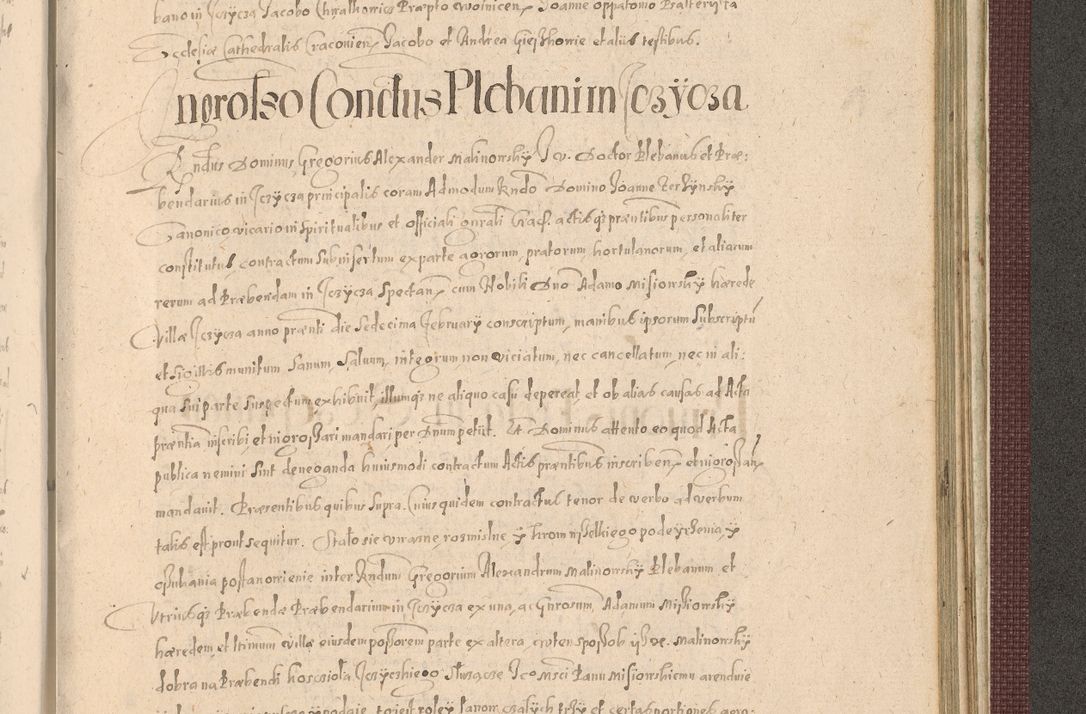 bano in Jczÿcza Jacobo Chwalkowicz Præpto Woinicen, Joanne oppatomo Psalterista
Ecclesiæ Cathedralis Cracovien, Jacobo et Andrea Gieszkowie et aliis testibus.
Ingrosso Conctus Plebani in Jczÿcza
Rndus Dominus Gregorius Alexander Malinowskÿ J. v. Doctor Plebanus et Præ:
bendarius in Jczÿcza principalis coram Admodum Rndo Domino Joanne
Canonico vicario in Spiritualibus et officiali gnrali Crac. actisq præntibus personaliter
constitutus contractum Subinsertum ex parte agrorum, pratorum, hortulanorum, et aliarum
rerum ad Præbendam in Jczÿcza Spectan, cum Nobili Dno Adamo Misiowskÿ hærede
Villæ Jczÿcza anno prænti die Sedecima Februarÿ conscriptum, manibus ipsorum Subscriptu
et Sigillis munitum Sanum, Salvum, integrum, non viciatum, nec cancellatum, nec in ali:
qua Sui parte Suspectum exhibuit, illumq ne aliquo casu depereat et ob alias causas ad Acta
præntia inscribi et ingrossari mandari per Dnum petiit. Et Dominus attento eo quod Acta
publica nemini Sint deneganda huiusmodi contractum Actis præntibus inscriben, et ingrossan,
mandavit. Præsentibus quibus Supra. Cuius quidem contractus tenor de verbo ad verbum
talis est prout sequitur. Stało sie wiecne, rozmislne, ÿ krom wszelkiego podeÿrzenia, ÿ
oszukania postanowienie inter Rndum Gregorium Alexandrum Malinowskÿ Plebanum et
Utriusq Præbendæ Præbendarium in Jczÿcza ex una, ac Gnrosum, Adamum Misiowskÿ
hæredem et ltimum Villæ eiusdem possorem parte ex altera, w ten sposob isz Malinowskÿ
dobra na Præbendi koscziola Jczÿckiego Służące Jego Msci Panu Misiowskiemu arenduie